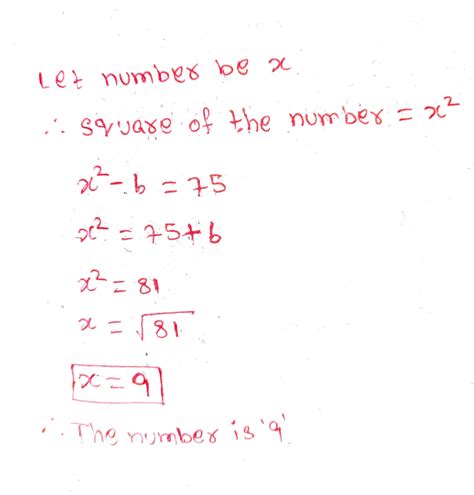 Let number be x
∴ square of the number = x²
x² - 6 = 75
x² = 75 + 6
x² = 81
x = √81
x = 9
∴ The number is '9'